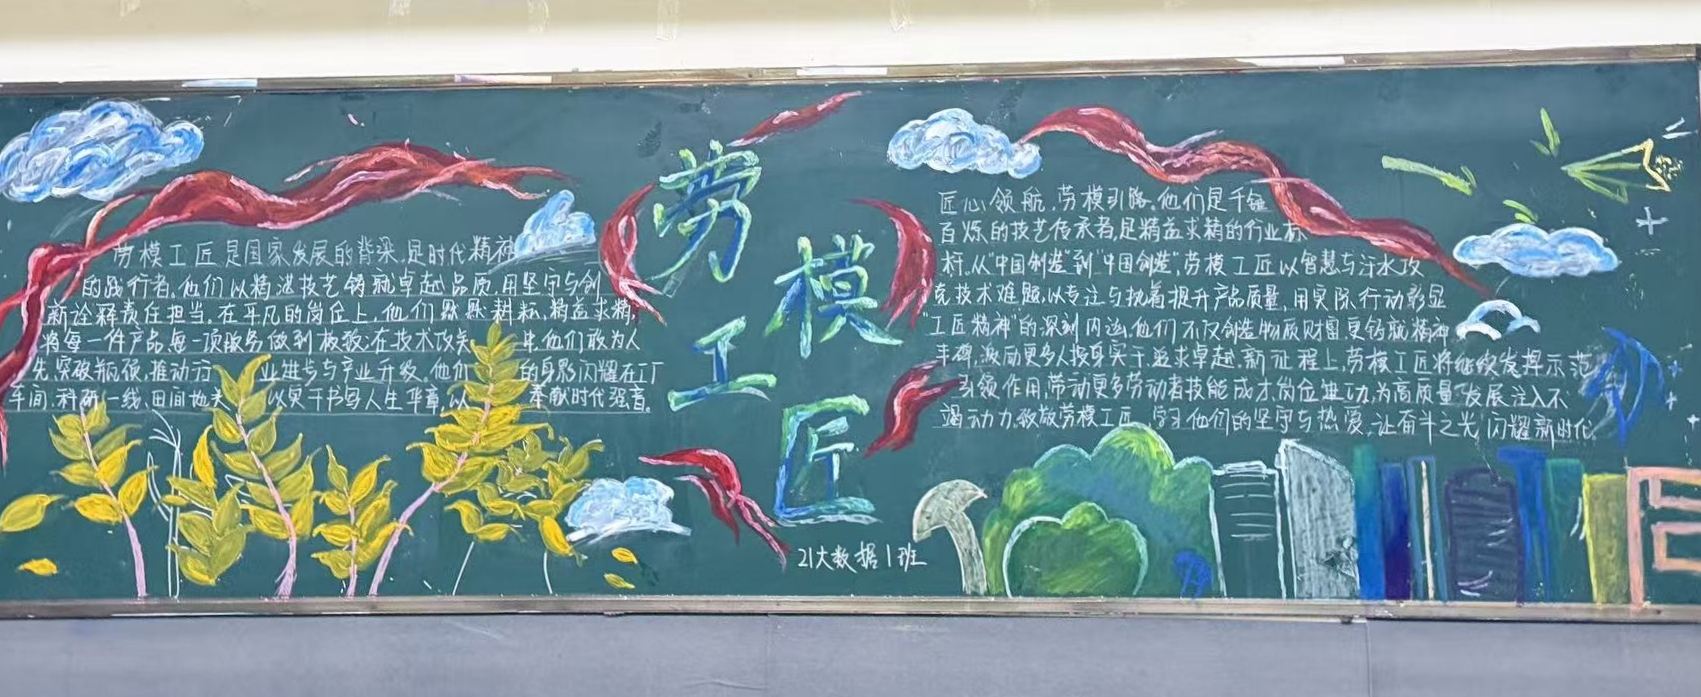 劳模工匠是国家发展的脊梁,是时代精神
的践行者,他们以精湛技艺铸就卓越品质,用坚守与创
新诠释责任担当。在平凡的岗位上,他们默默耕耘,精益求精,
将每一件产品每一项服务做到极致;在技术攻关 中,他们敢为人
先突破瓶颈,推动行 业进步与产业升级。他们 的身影闪耀在工厂
车间、科研一线、田间地头 以实干书写人生华章,以 奉献时代强音。
劳模
工匠
21大数据1班
匠心领航,劳模引路。他们是千锤
百炼的技艺传承者,是精益求精的行业标
杆。从"中国制造"到"中国创造",劳模工匠以智慧与汗水攻
克技术难题,以专注与执着提升产品质量,用实际行动彰显
"工匠精神"的深刻内涵。他们不仅创造物质财富,更铸就精神
丰碑,激励更多人投身实干追求卓越。新征程上,劳模工匠将继续发挥示范
引领作用,带动更多劳动者技能成才岗位建功,为高质量发展注入不
竭动力。致敬劳模工匠,学习他们的坚守与热爱,让奋斗之光闪耀新时代